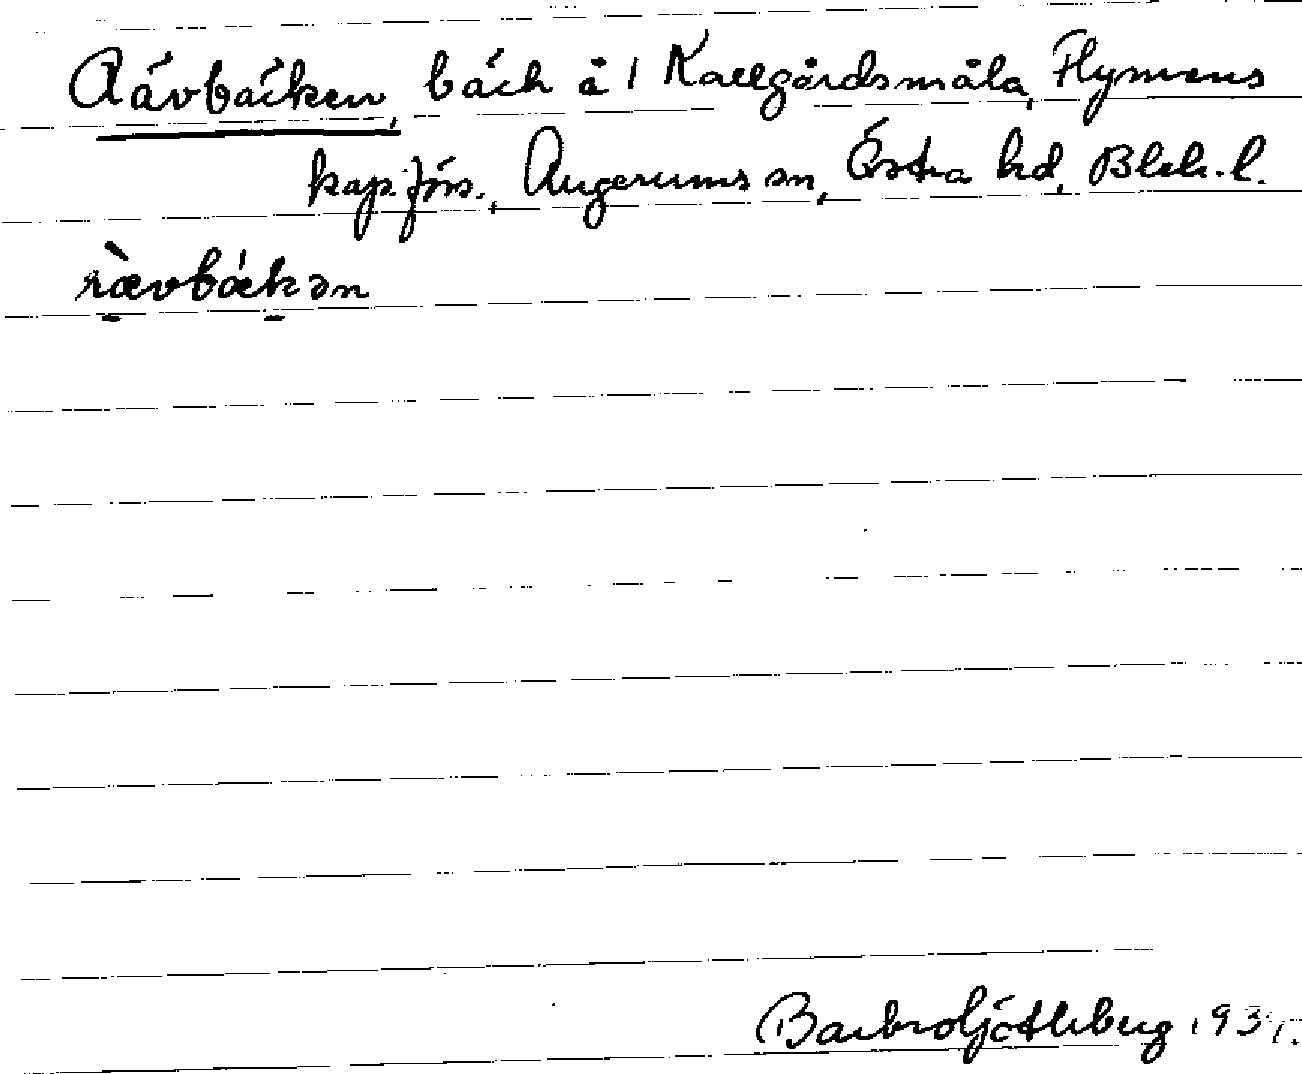 Rävbäcken, bäck å 1 Kallgårdsmåla, Flymens
kap.förs., Augerums sn, Östra hd, Blek. l.
rævbækən
Barbro Söderberg 193